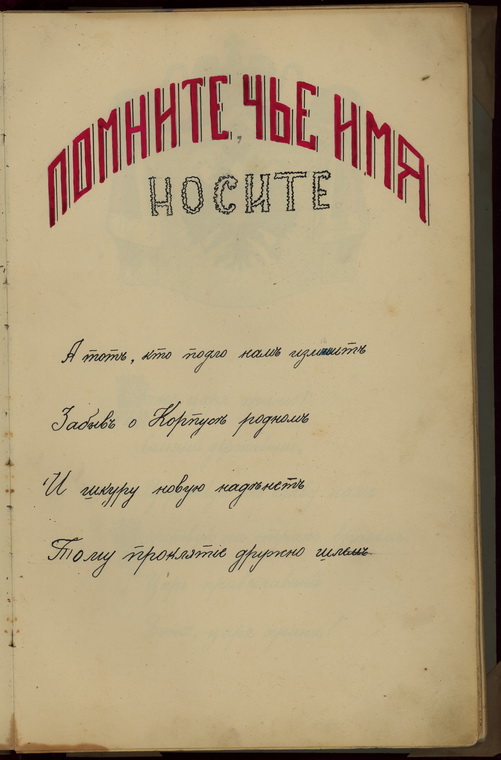 ПОМНИТЕ, ЧЬЕ ИМЯ
НОСИТЕ
А тотъ, кто подло намъ измѣнитъ
Забывъ о Корпусѣ родномъ
И шкуру новую надѣнетъ
Тому проклятіе дружно шлемъ